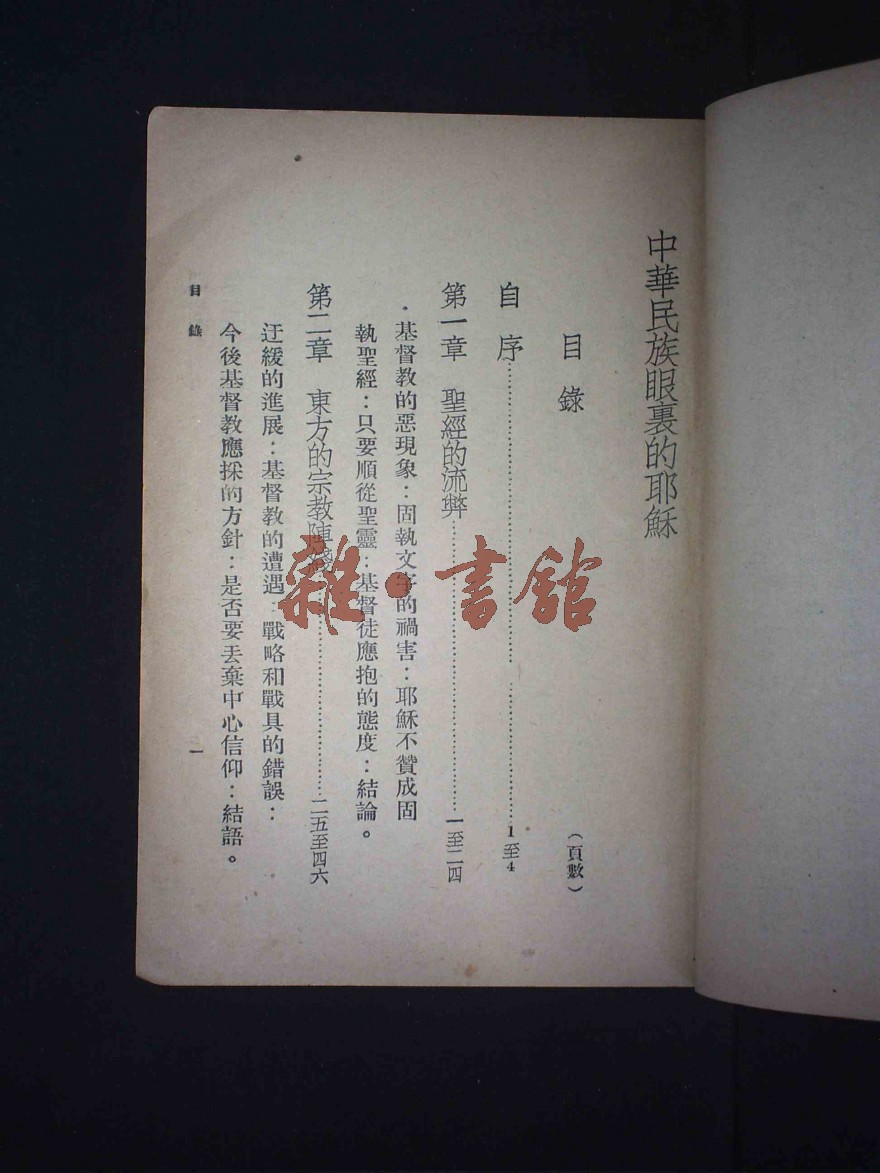 中華民族眼裏的耶穌
目錄
(頁數)
自序……1至4
第一章 聖經的流弊……一至二四
·基督教的惡現象：固執文字的禍害：耶穌不贊成固
執聖經：只要順從聖靈：基督徒應抱的態度：結論。
第二章 東方的宗教陣綫……二五至四六
迂緩的進展：基督教的遭遇：戰略和戰具的錯誤：
今後基督教應採的方針：是否要丟棄中心信仰：結語。
目錄
一
雜·書館